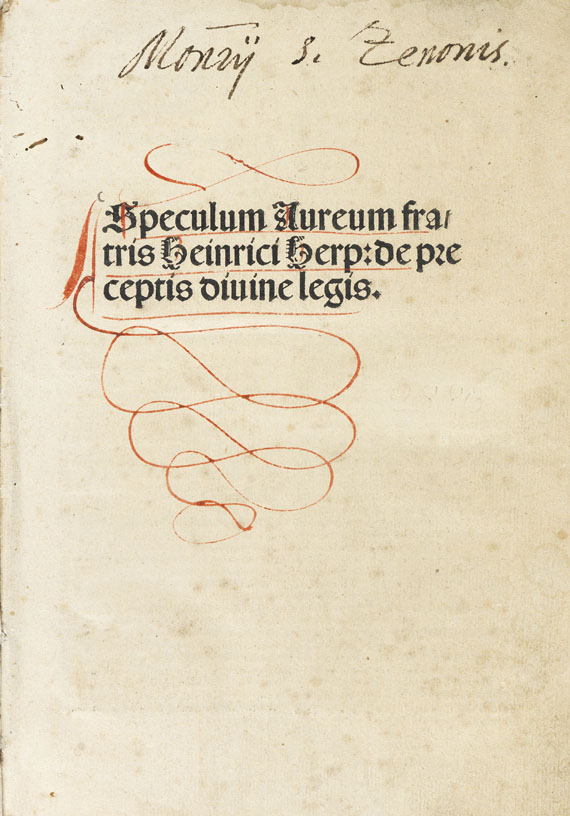 Monrij S. Zenonis.
Speculum Aureum fra/
tris Heinrici Herp: de pre
ceptis diuine legis.